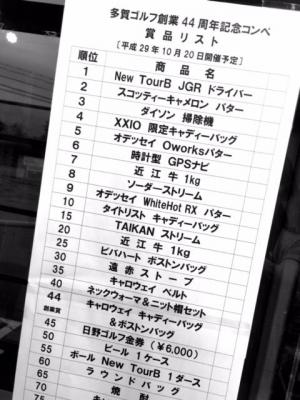 多賀ゴルフ創業44周年記念コンペ
賞品リスト
〔平成29年10月20日開催予定〕
順位 商品名
1 New TourB JGR ドライバー
2 スコッティーキャメロン パター
3 ダイソン 掃除機
4 XXIO 限定キャディーバッグ
5 オデッセイ Oworksパター
6 時計型 GPSナビ
7 近江牛 1kg
8 ソーダーストリーム
9 オデッセイ WhiteHot RX パター
10 タイトリスト キャディーバッグ
15 TAIKAN ストリーム
20 近江牛 1kg
25 ビバハート ボストンバッグ
30 遠赤ストーブ
35 キャロウェイ ベルト
40 ネックウォーマ&ニット帽セット
44 キャロウェイ キャディーバッグ
創業賞 &ボストンバッグ
45 日野ゴルフ金券(¥6,000)
50 ビール 1ケース
55 ボール New TourB 1ダース
60 ラウンドバッグ
65 焼酎
70
75